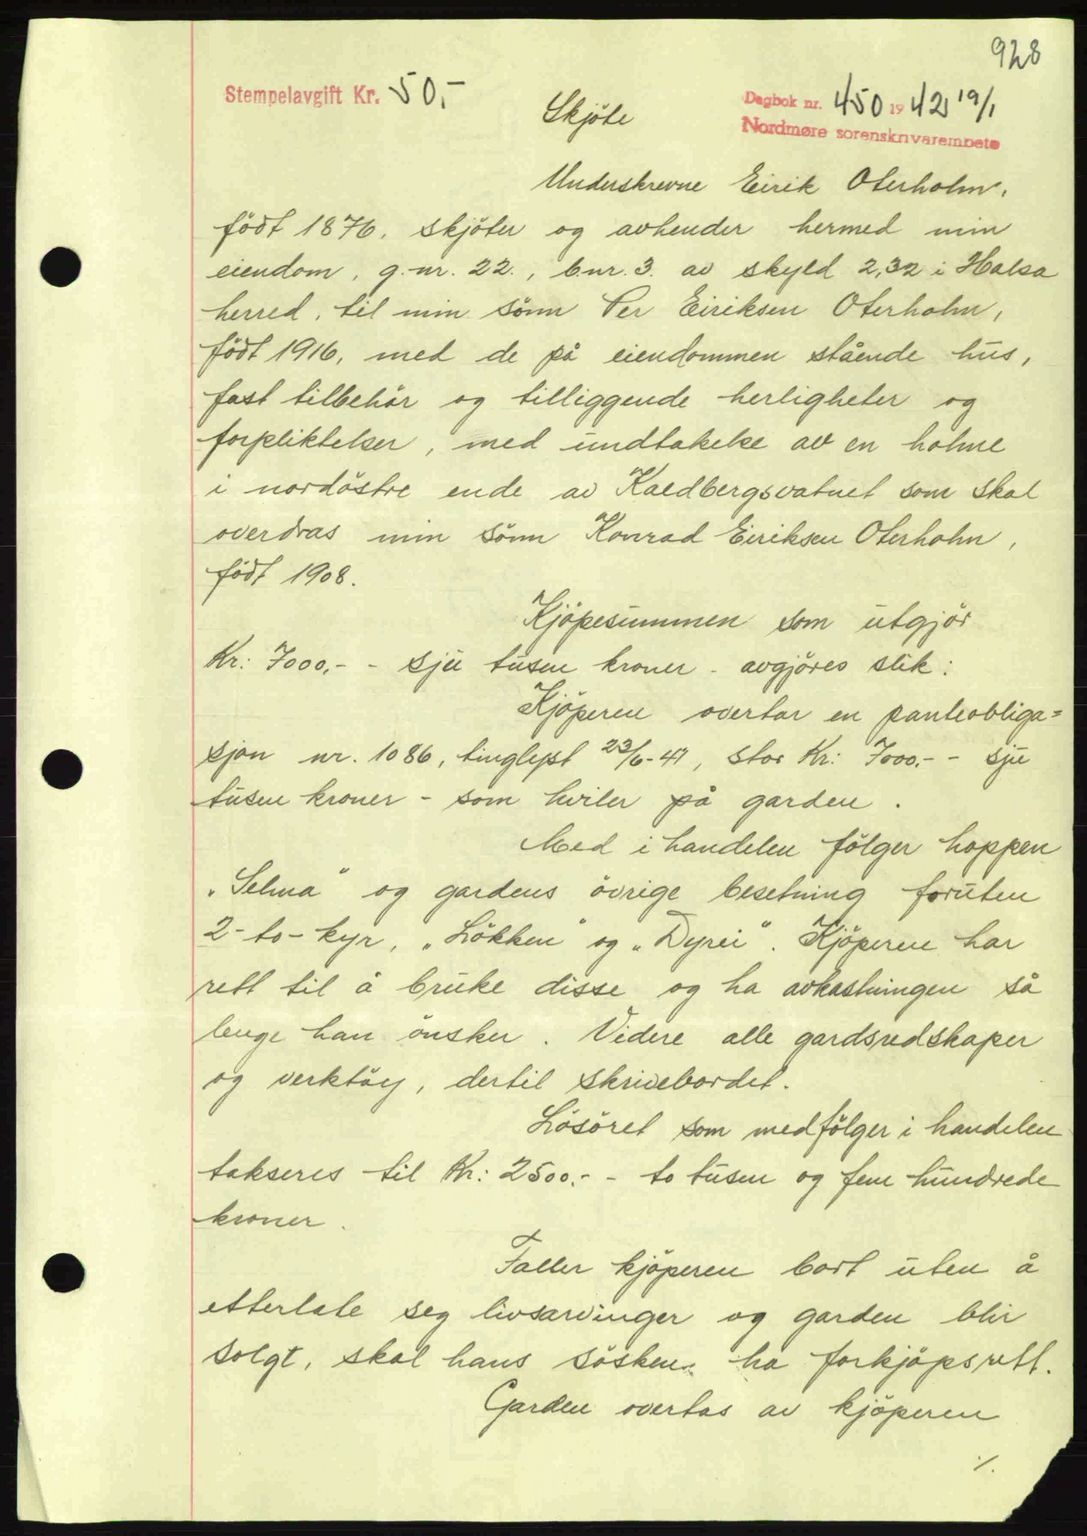 928
Stempelavgift Kr. 50,-
Dagbok nr. 450 1942 19/1
Nordmøre sorenskrivarembete
Skjöte
Underskrevne Eirik Oterholm,
födt 1876, skjöter og avhender hermed min
eiendom, g.nr. 22., b.nr. 3. av skyld 2,32 i Halsa
herred, til min sönn Per Eiriksen Oterholm,
födt 1916, med de på eiendommen stående hus,
fast tilbehör og tilliggende herligheter og
forpliktelser, med undtakelse av en holme
i nordöstre ende av Kaldbergsvatnet som skal
overdras min sönn Konrad Eiriksen Oterholm,
födt 1908.
Kjöpesummen som utgjör
Kr: 7000,- - sju tusen kroner - avgjöres slik:
Kjöperen overtar en panteobliga=
sjon nr. 1086, tinglyst 23/6-41, stor Kr: 7000.- - sju
tusen kroner - som hviler på garden.
Med i handelen fölger hoppen
„Selma" og gardens övrige besetning foruten
2- to- kyr, „Lökken" og „Dyrei". Kjöperen har
rett til å bruke disse og ha avkastningen så
lenge han önsker. Videre alle gardsredskaper
og verktöy, dertil skrivebordet.
Lösöret som medfölger i handelen
takseres til Kr: 2500.- - to tusen og fem hundrede
kroner.
Faller kjöperen bort uten å
etterlate seg livsarvinger og garden blir
solgt, skal hans sösken ha forkjöpsrett.
Garden overtas av kjöperen
./.